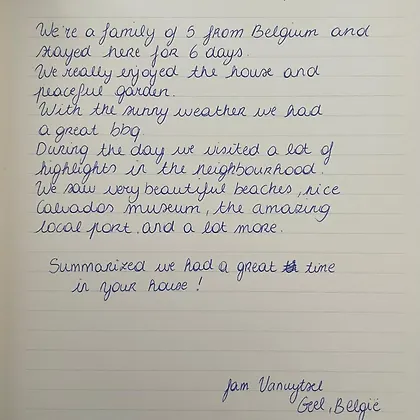 We're a family of 5 from Belgium and
stayed here for 6 days.
We really enjoyed the house and
peaceful garden.
With the sunny weather we had
a great bbq.
During the day we visited a lot of
highlights in the neighbourhood.
We saw very beautiful beaches, nice
Calvados museum, the amazing
local port and a lot more.
Summarized we had a great time
in your house !
Geel, België